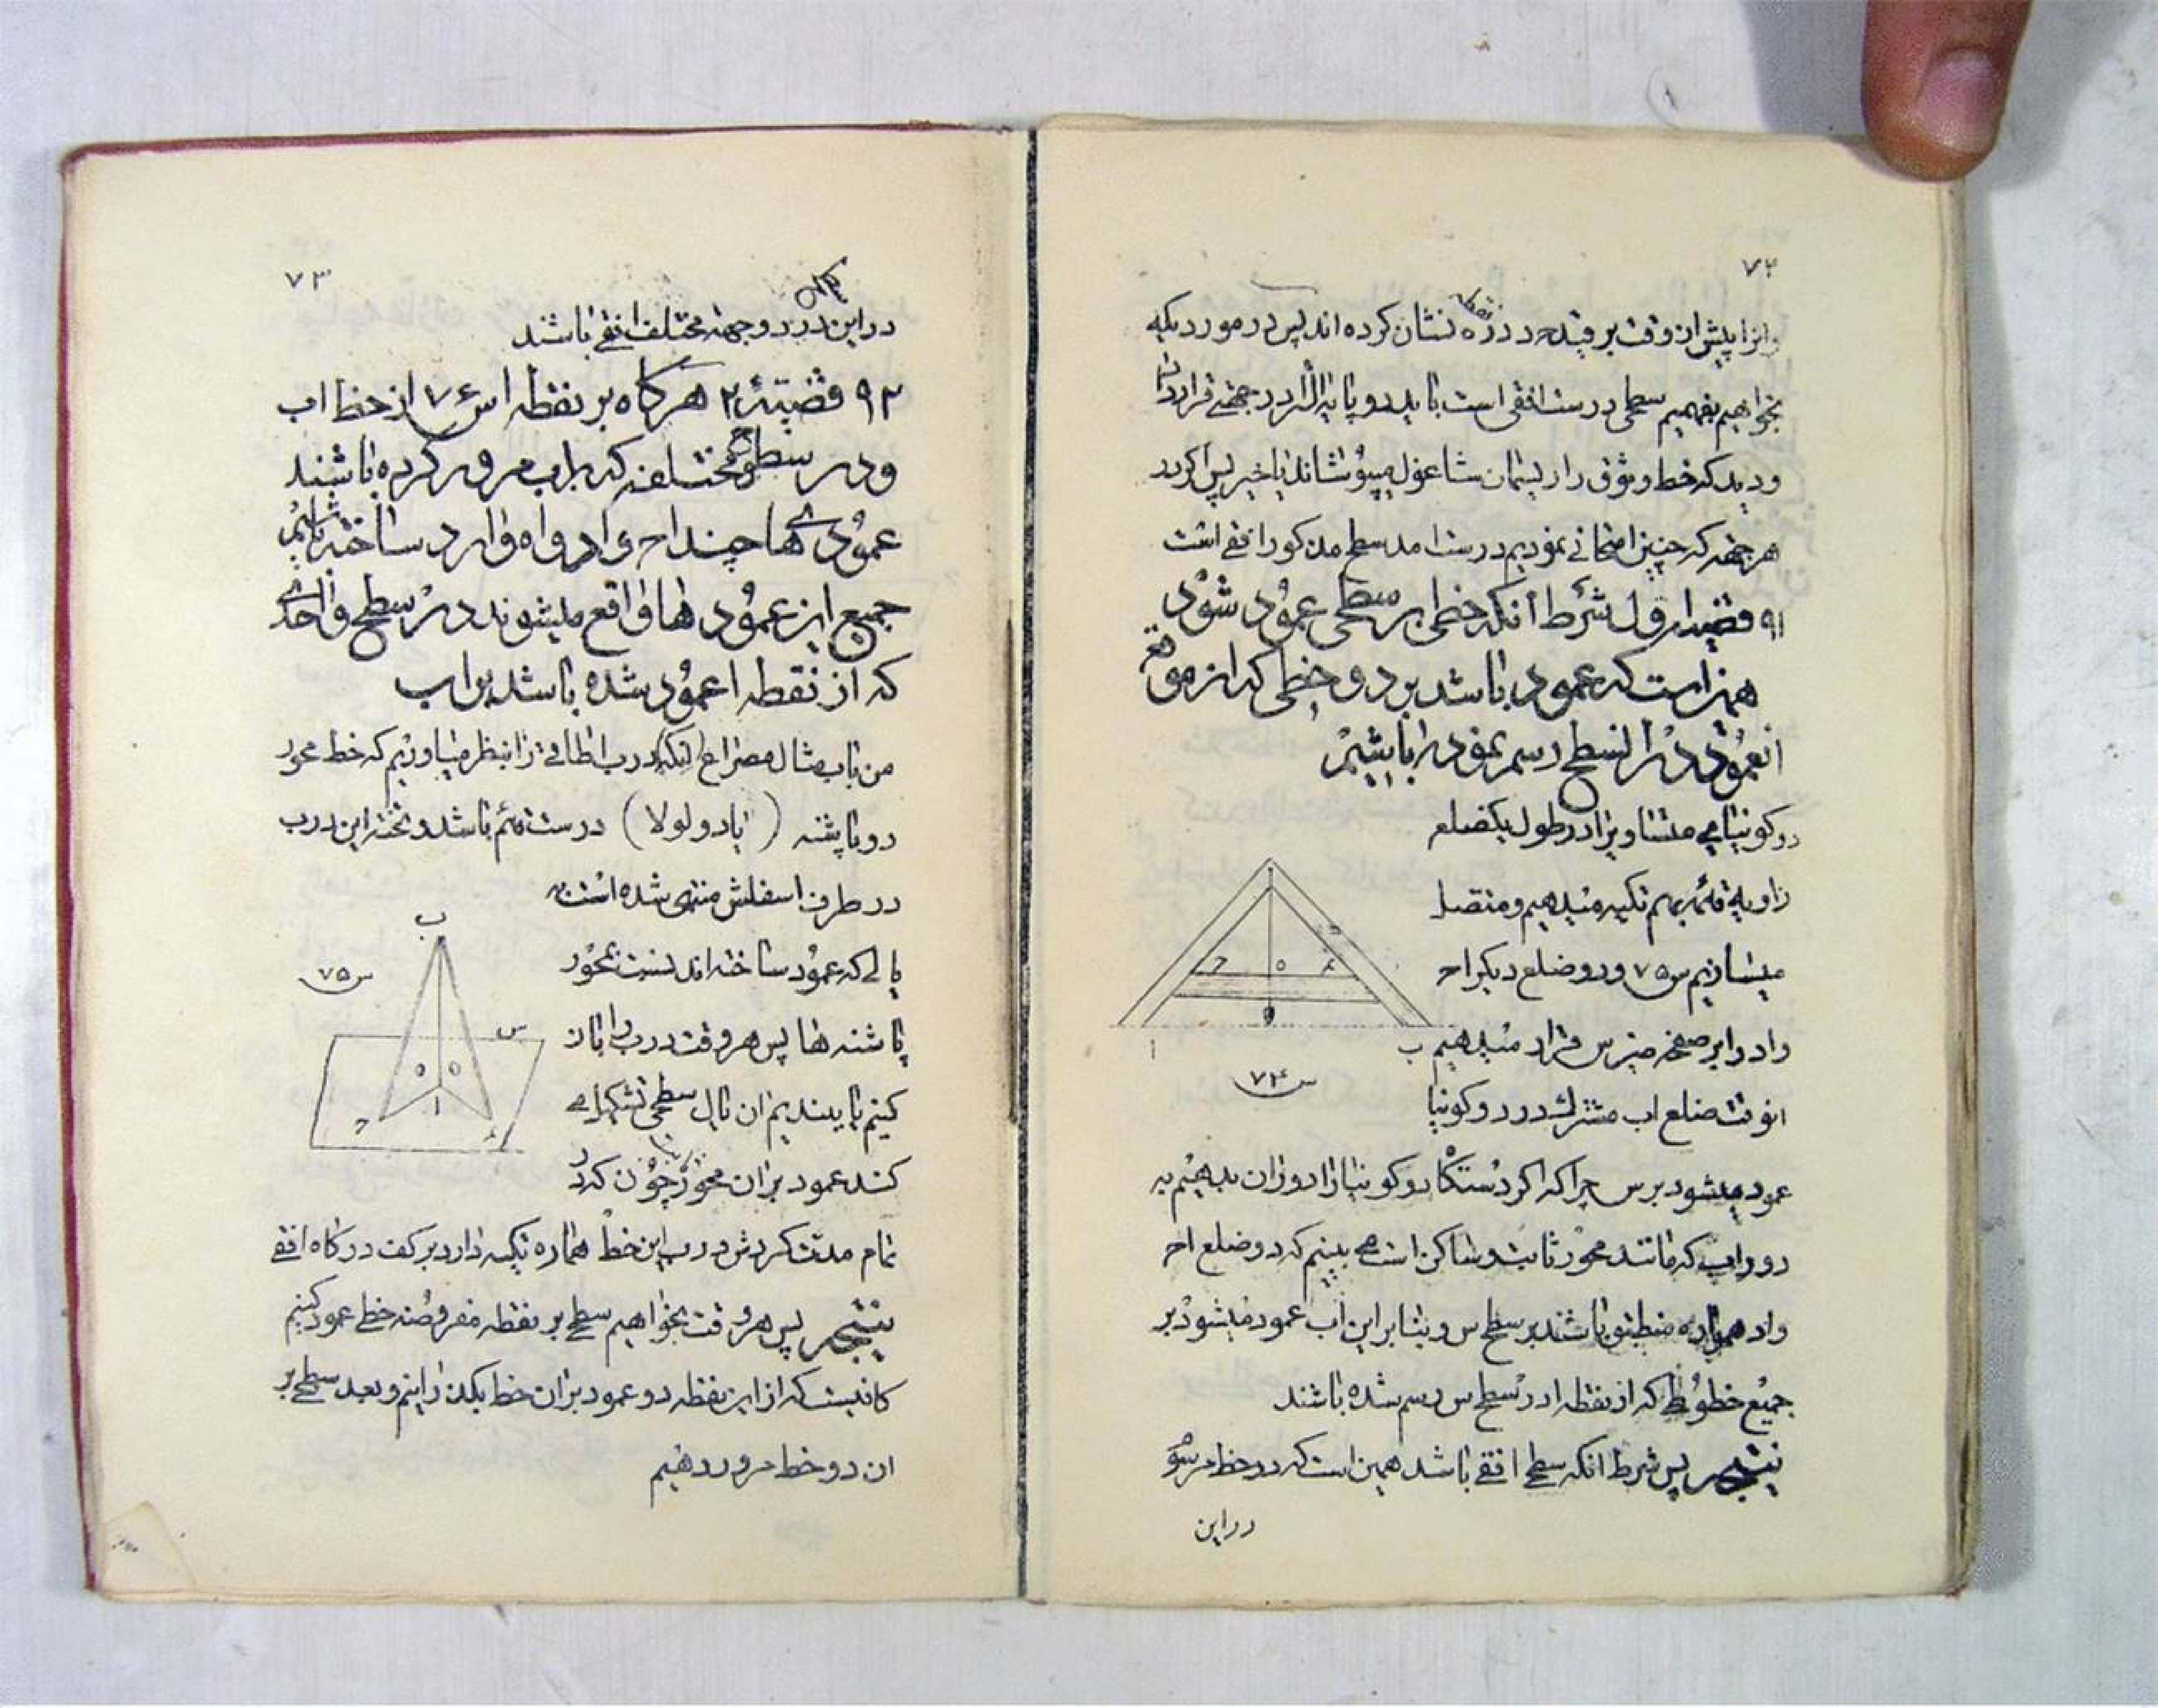 ۷۲
پیش از وقت بر قید ح د در ه نشان کرده‌اند پس در موردیکه
بخواهیم بفهمیم سطحی درست افقی است باید دو پایه را در جهتی قرار داد
و دید که خط وثوق را ریسمان شاغول میپوشاند یا خیر پس اگر در
هر جهه که چنین امتحانی نمودیم درست امد سطح مذکور افقی است
۹۱ قضیه اول شرط آنکه خطی بر سطحی عمود شود
همین است که عمود باشد بر دو خطی که از موقع
انعمود در انسطح رسم نموده باشیم
دو کونیای متساویرا در طول یکضلع
زاویه قائمه بهم تکیه میدهیم و متصل
میسازیم س۷۵ و دو ضلع دیگر اح
و اد را بر صفحه میز س قرار میدهیم
انوقت ضلع اب مشترک در دو کونیا
عمود میشود بر س چرا که اگر دستگاه دو کونیا را دوران بدهیم به
دور اب که مانند محور ثابت و ساکن است می بینیم که دو ضلع اح
و اد همواره منطبق باشند بر سطح س و بنا بر این اب عمود میشود بر
جمیع خطوطی که از نقطه ا در سطح س رسم شده باشند
نتیجه پس شرط انکه سطحی افقی باشد همین است که دو خط مرسوم
در این
ح
ه
د
ا
ب
س ۷۴
۷۳
در این در دو جهة مختلف افقی باشند
۹۲ قضیهٔ ۲ هرگاه بر نقطه ا س ۷۶ از خط اب
و در سطوح مختلفه که بر اب مرور کرده باشند
عمودی ها چند اح و اد و اه و ار ساخته باشیم
جمیع این عمود ها واقع میشوند در سطح واحدی
که از نقطه ا عمود شده باشد بر اب
من باب مثال مصراع لنگه درب اطاقی را بنظر میاوریم که خط محور
دو پاشنه ( یا دو لولا ) درست قائم باشد و تخته این درب
در طرف اسفلش منتهی شده است به
یالی که عمود ساخته اند نسبت بمحور
پاشنه ها پس هر وقت درب را باز
کنیم یا ببندیم ان یال سطحی تشکیل می
کند عمود بر ان محور چون که در
تمام مدت گردش درب این خط هماره تکیه دارد بر کف درگاه افقی
نتیجه پس هر وقت بخواهیم سطحی بر نقطه مفروضه خطی عمود کنیم
کافیست که از این نقطه دو عمود بر ان خط بگذرانیم و بعد سطحی بر
ان دو خط مرور دهیم
ب
س ۷۵
س
ا
ح
د